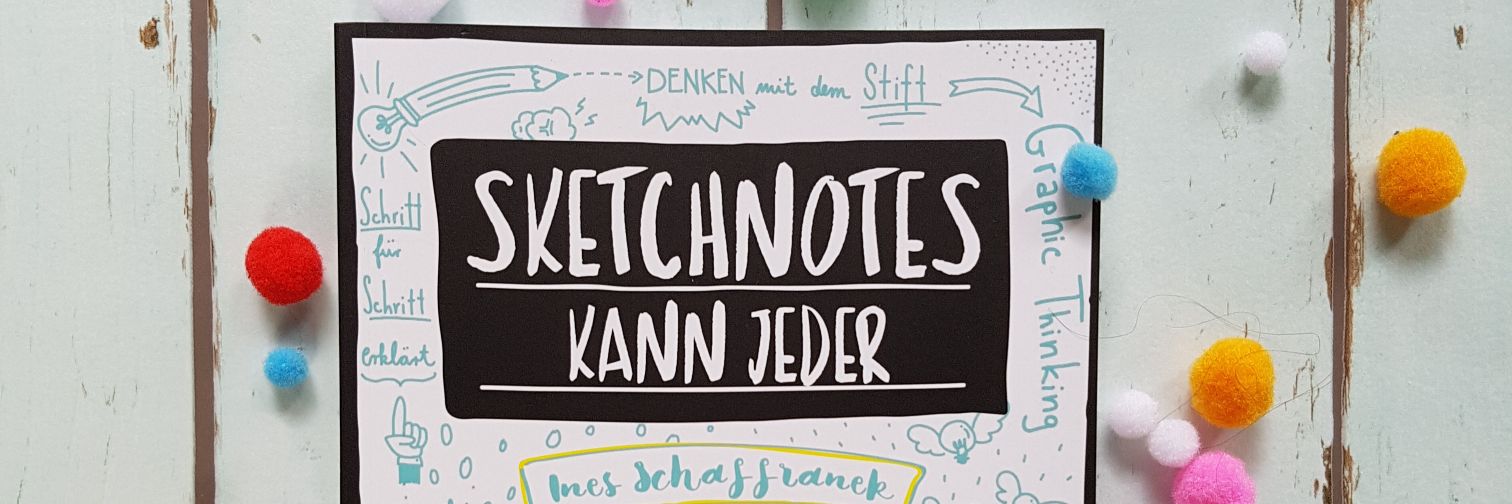 DENKEN mit dem Stift
Graphic Thinking
Schritt
für
Schritt
erklärt
SKETCHNOTES
KANN JEDER
Ines Schaffranek